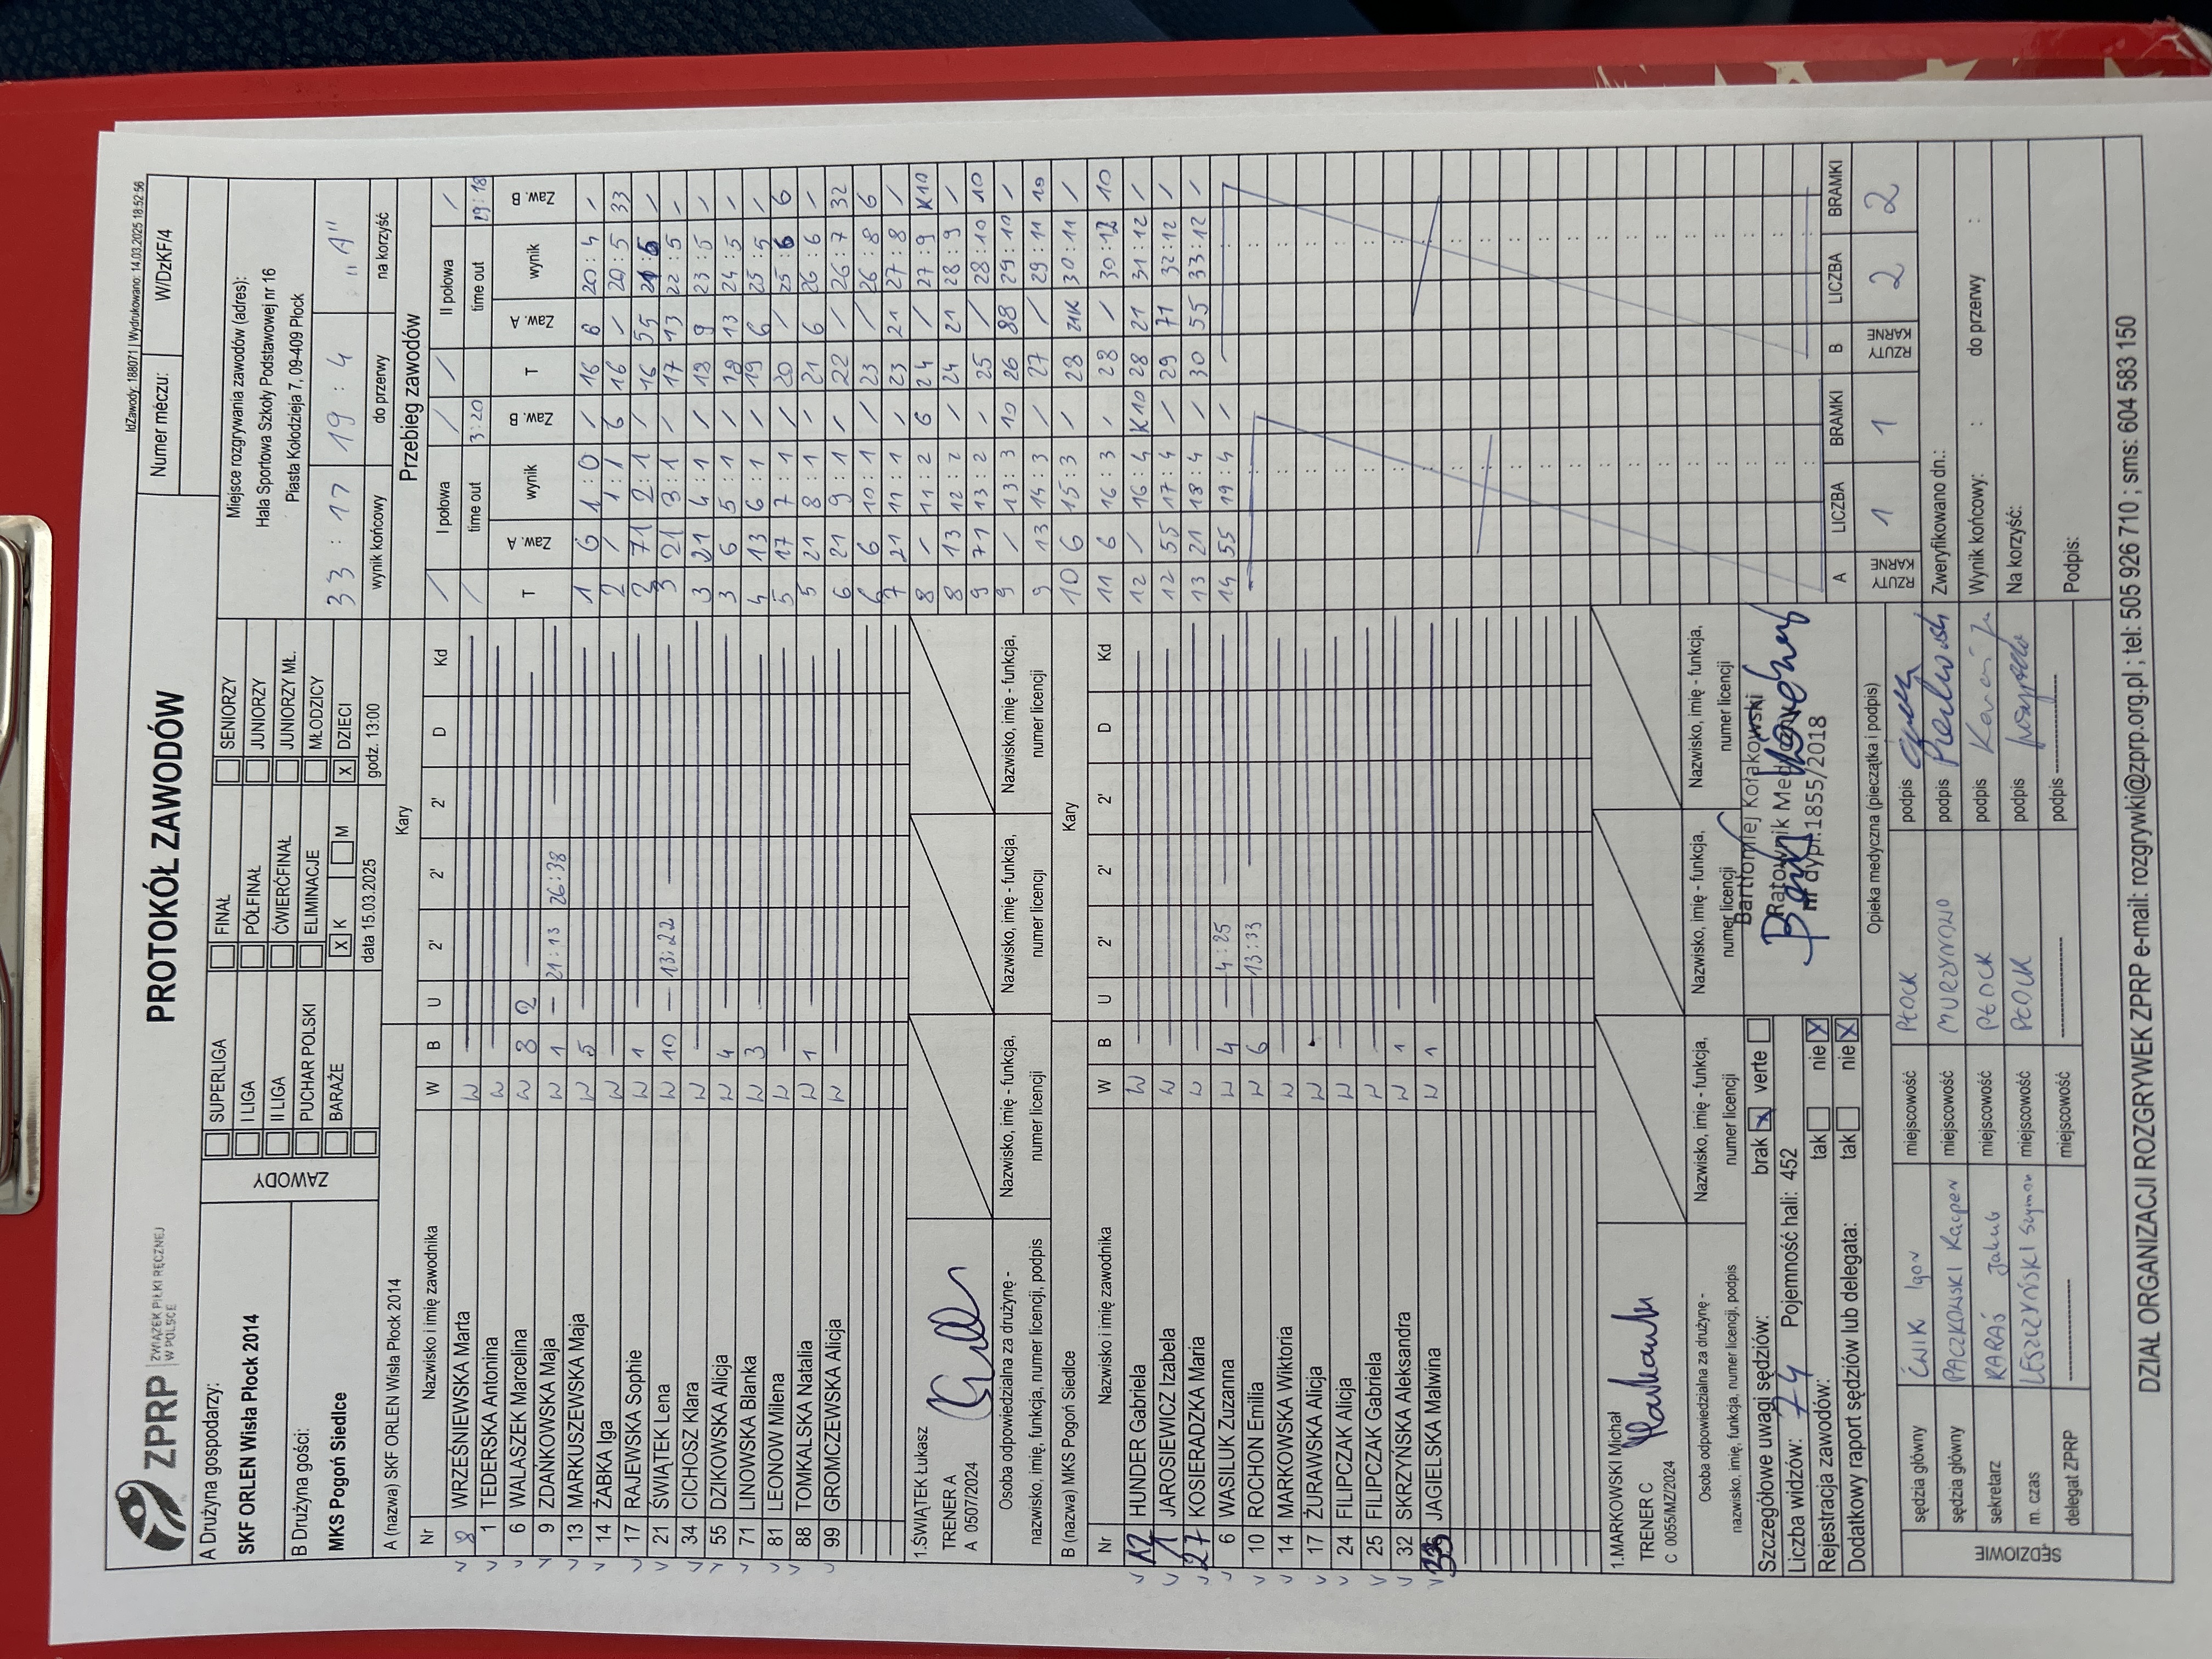 IdZawody: 188071 | Wydrukowano: 14.03.2025 18:52:56
ZPRP ZWIĄZEK PIŁKI RĘCZNEJ W POLSCE
PROTOKÓŁ ZAWODÓW
Numer meczu: W/DzKF/4
A Drużyna gospodarzy:
SKF ORLEN Wisła Płock 2014
B Drużyna gości:
MKS Pogoń Siedlce
ZAWODY
SUPERLIGA FINAŁ SENIORZY
I LIGA PÓŁFINAŁ JUNIORZY
II LIGA ĆWIERĆFINAŁ JUNIORZY MŁ.
PUCHAR POLSKI ELIMINACJE MŁODZICY
BARAŻE X K M X DZIECI
data 15.03.2025 godz. 13:00
Miejsce rozgrywania zawodów (adres):
Hala Sportowa Szkoły Podstawowej nr 16
Piasta Kołodzieja 7, 09-409 Płock
33 : 17 19 : 4 "A"
wynik końcowy do przerwy na korzyść
A (nazwa) SKF ORLEN Wisła Płock 2014 Kary
Nr Nazwisko i imię zawodnika W B U 2' 2' 2' D Kd
8 WRZEŚNIEWSKA Marta W
1 TEDERSKA Antonina W
6 WALASZEK Marcelina W 8 2
9 ZDANKOWSKA Maja W 1 21:13 26:38
13 MARKUSZEWSKA Maja W 5
14 ŻABKA Iga W
17 RAJEWSKA Sophie W 1
21 ŚWIĄTEK Lena W 10 13:22
34 CICHOSZ Klara W
55 DZIKOWSKA Alicja W 4
71 LINOWSKA Blanka W 3
81 LEONOW Milena W
88 TOMKALSKA Natalia W 1
99 GROMCZEWSKA Alicja W
1.ŚWIĄTEK Łukasz
TRENER A
A 0507/2024
Osoba odpowiedzialna za drużynę - nazwisko, imię, funkcja, numer licencji, podpis
Nazwisko, imię - funkcja, numer licencji
Nazwisko, imię - funkcja, numer licencji
Nazwisko, imię - funkcja, numer licencji
B (nazwa) MKS Pogoń Siedlce Kary
Nr Nazwisko i imię zawodnika W B U 2' 2' 2' D Kd
12 HUNDER Gabriela W
JAROSIEWICZ Izabela W
27 KOSIERADZKA Maria W
6 WASILUK Zuzanna W 4 4:25
10 ROCHON Emilia W 6 13:33
14 MARKOWSKA Wiktoria W
17 ŻURAWSKA Alicja W
24 FILIPCZAK Alicja W
25 FILIPCZAK Gabriela W
32 SKRZYŃSKA Aleksandra W 1
33 JAGIELSKA Malwina W 1
1.MARKOWSKI Michał
TRENER C
C 0055/MZ/2024
Osoba odpowiedzialna za drużynę - nazwisko, imię, funkcja, numer licencji, podpis
Nazwisko, imię - funkcja, numer licencji
Nazwisko, imię - funkcja, numer licencji
Nazwisko, imię - funkcja, numer licencji
Szczegółowe uwagi sędziów: brak X verte
Liczba widzów: 74 Pojemność hali: 452
Rejestracja zawodów: tak nie X
Dodatkowy raport sędziów lub delegata: tak nie X
Bartłomiej Kołakowski
Ratownik Medyczny
nr dypl.1855/2018
Opieka medyczna (pieczątka i podpis)
SĘDZIOWIE
sędzia główny ĆWIK Igor miejscowość PŁOCK podpis
sędzia główny PACZKOWSKI Kacper miejscowość MURZYNOWO podpis
sekretarz KARAŚ Jakub miejscowość PŁOCK podpis
m. czas LESZCZYŃSKI Szymon miejscowość PŁOCK podpis
delegat ZPRP miejscowość podpis
Przebieg zawodów
I połowa / II połowa /
time out 3:20 time out 29:18
T Zaw. A wynik Zaw. B T Zaw. A wynik Zaw. B
1 6 1 : 0 / 16 6 20 : 4 /
2 / 1 : 1 6 16 / 20 : 5 33
2 71 2 : 1 / 16 55 21 : 5 /
3 21 3 : 1 / 17 13 22 : 5 /
3 21 4 : 1 / 18 9 23 : 5 /
3 6 5 : 1 / 18 13 24 : 5 /
4 13 6 : 1 / 19 6 25 : 5 /
5 17 7 : 1 / 20 / 25 : 6 6
5 21 8 : 1 / 21 6 26 : 6 /
6 21 9 : 1 / 22 / 26 : 7 32
6 6 10 : 1 / 23 / 26 : 8 6
7 21 11 : 1 / 23 21 27 : 8 /
8 / 11 : 2 6 24 / 27 : 9 K10
8 13 12 : 2 / 24 21 28 : 9 /
9 71 13 : 2 / 25 / 28 : 10 10
9 / 13 : 3 10 26 88 29 : 10 /
9 13 14 : 3 / 27 / 29 : 11 10
10 6 15 : 3 / 28 21K 30 : 11 /
11 6 16 : 3 / 28 / 30 : 12 10
12 / 16 : 4 K10 28 21 31 : 12 /
12 55 17 : 4 / 29 71 32 : 12 /
13 21 18 : 4 / 30 55 33 : 12 /
14 55 19 : 4 /
A LICZBA BRAMKI B LICZBA BRAMKI
RZUTY KARNE 1 1 RZUTY KARNE 2 2
Zweryfikowano dn.:
Wynik końcowy: : do przerwy :
Na korzyść:
Podpis:
DZIAŁ ORGANIZACJI ROZGRYWEK ZPRP e-mail: rozgrywki@zprp.org.pl ; tel: 505 926 710 ; sms: 604 583 150